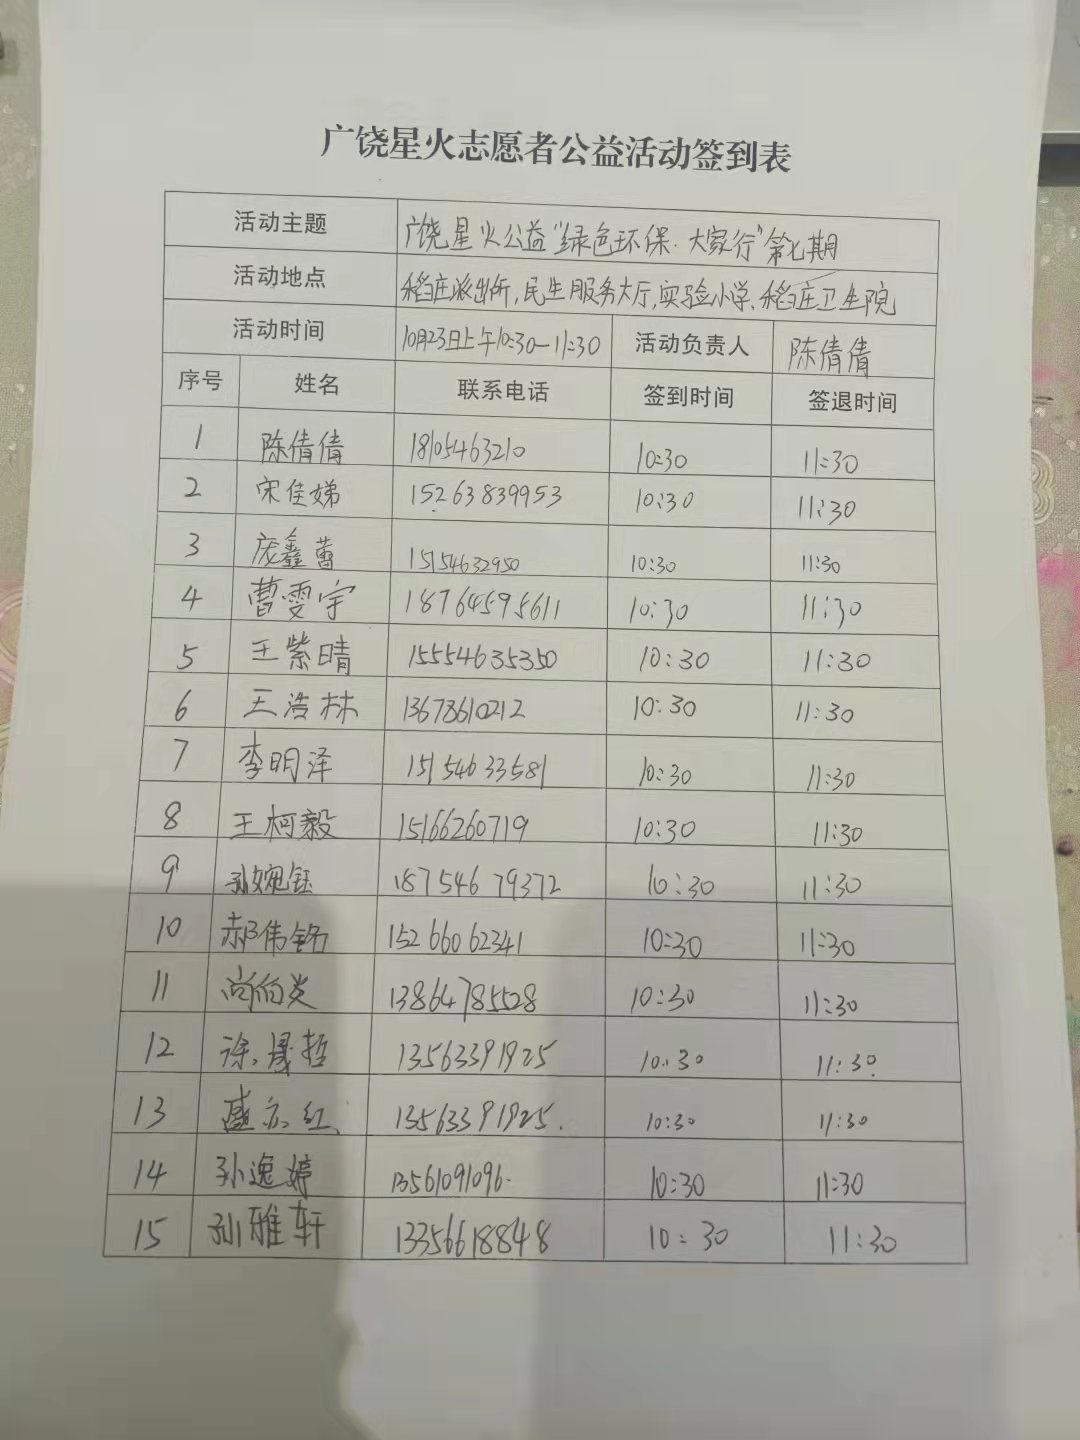 广饶星火志愿者公益活动签到表
活动主题 广饶星火公益“绿色环保·大家行”第七期
活动地点 稻庄派出所,民生服务大厅,实验小学、稻庄卫生院
活动时间 10月23日上午10:30-11:30 活动负责人 陈倩倩
序号 姓名 联系电话 签到时间 签退时间
1 陈倩倩 18105463210 10:30 11:30
2 宋佳娣 15263839953 10:30 11:30
3 庞鑫蕾 15154632950 10:30 11:30
4 曹雯宇 18764595611 10:30 11:30
5 王紫晴 15554635350 10:30 11:30
6 王浩林 13678610212 10:30 11:30
7 李明泽 15154633581 10:30 11:30
8 王柯毅 15166260719 10:30 11:30
9 孙婉钰 187546 79372 10:30 11:30
10 郝伟铭 15266062341 10:30 11:30
11 尚伯炎 13864785528 10:30 11:30
12 徐晟哲 13563391925 10:30 11:30
13 盛 红 13563391925. 10:30 11:30
14 孙逸婷 13561091096. 10:30 11:30
15 孙雅轩 13356618848 10:30 11:30